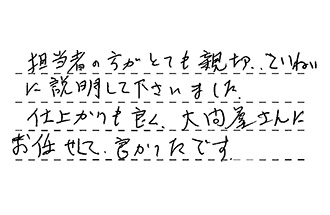 担当者の方がとても親切、ていねい
に説明して下さいました
仕上がりも良く、大問屋さんに
お任せして良かったです